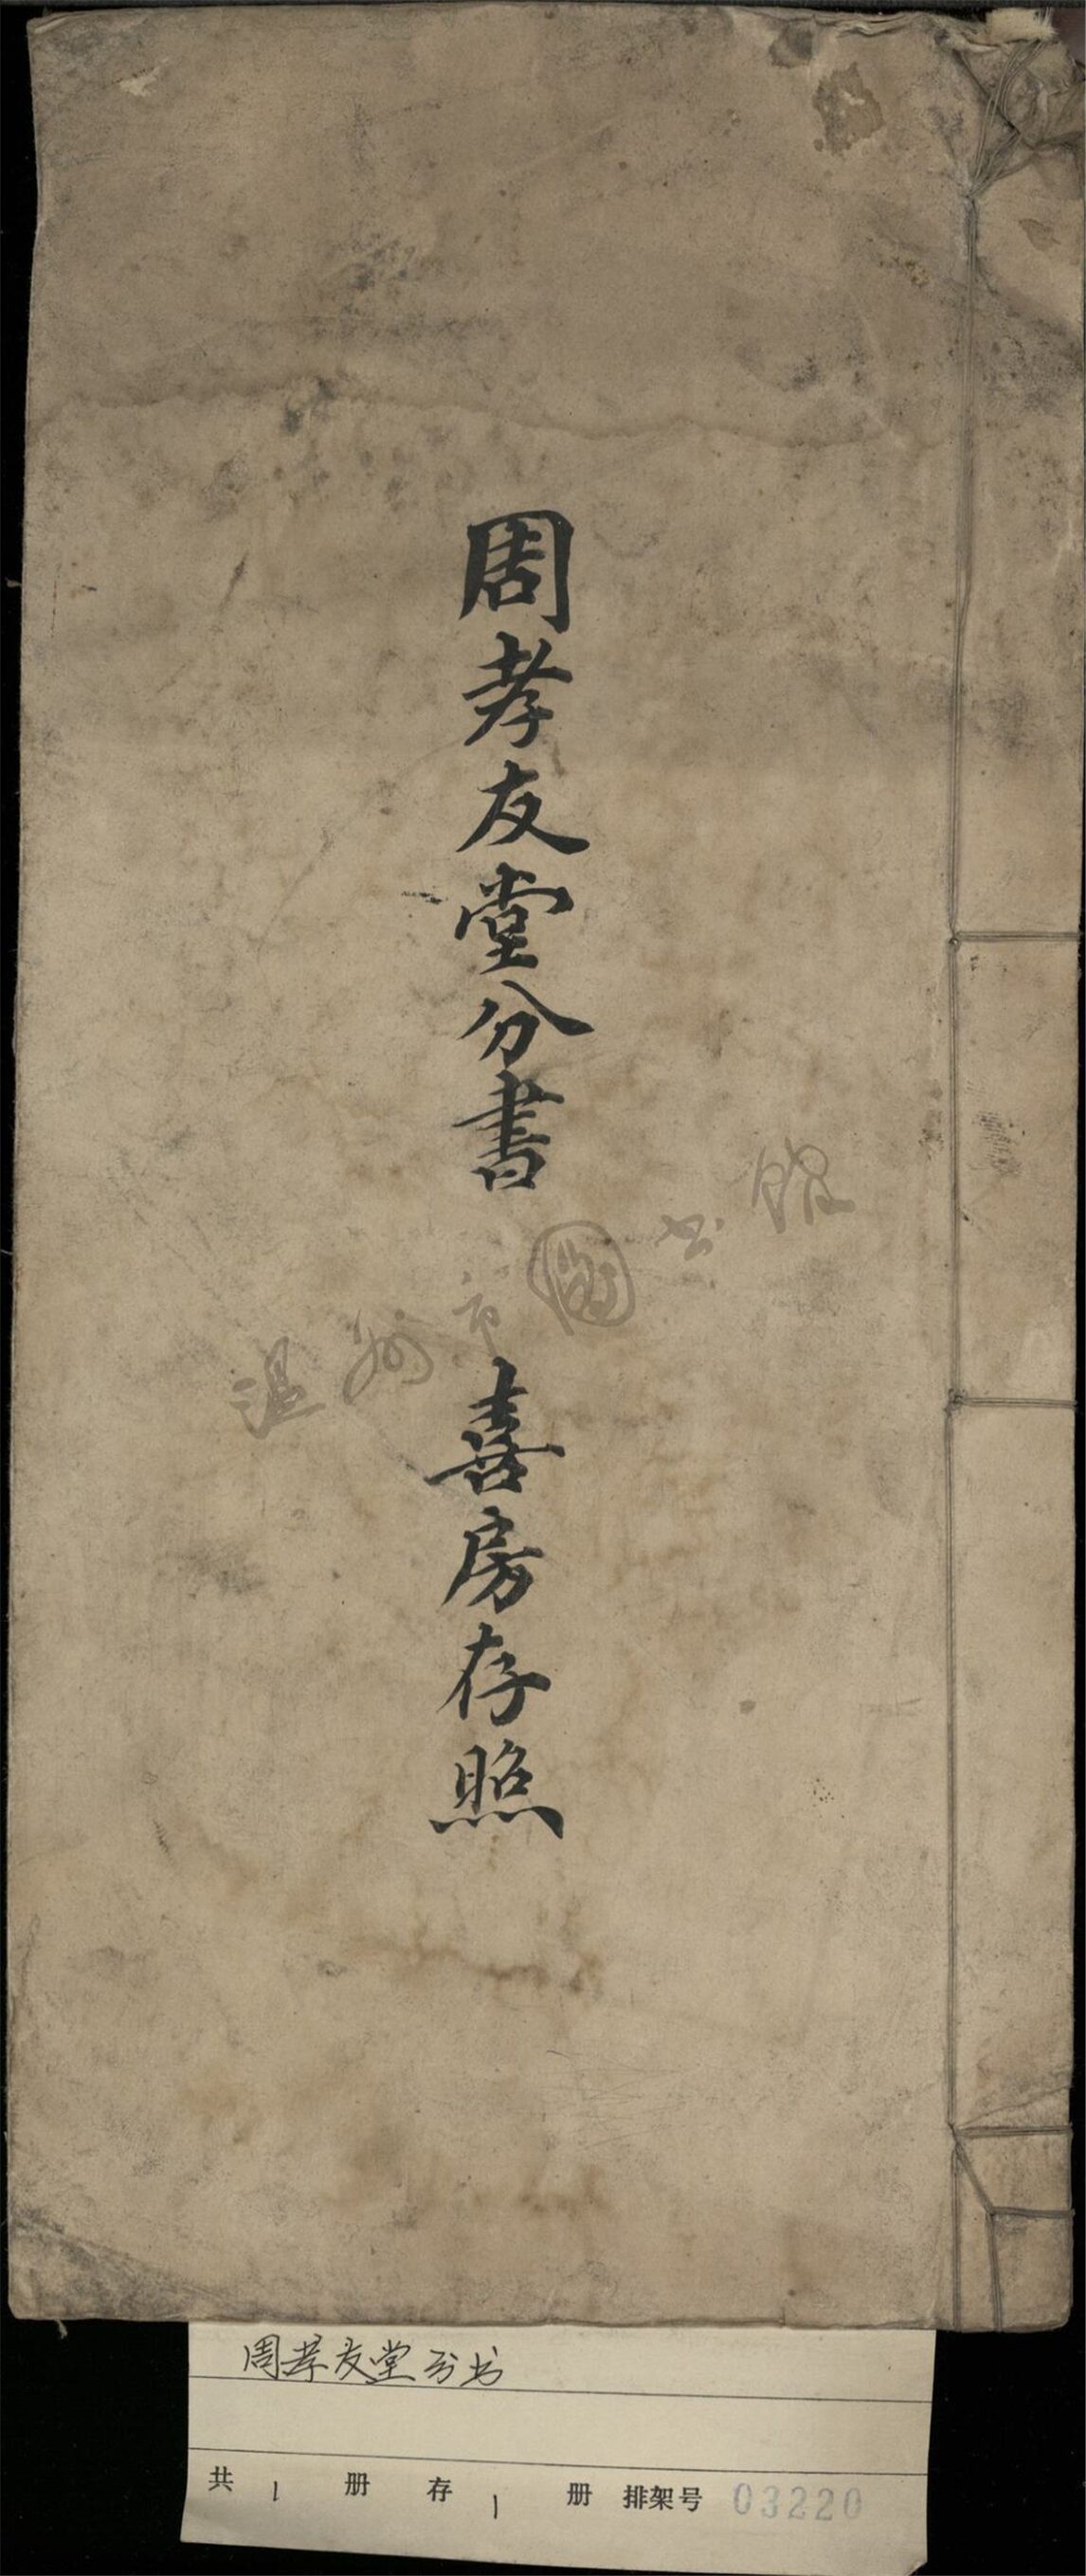 周孝友堂分書 喜房存照
温州市图书馆
周孝友堂分书
共 1 册 存 1 册 排架号 03220